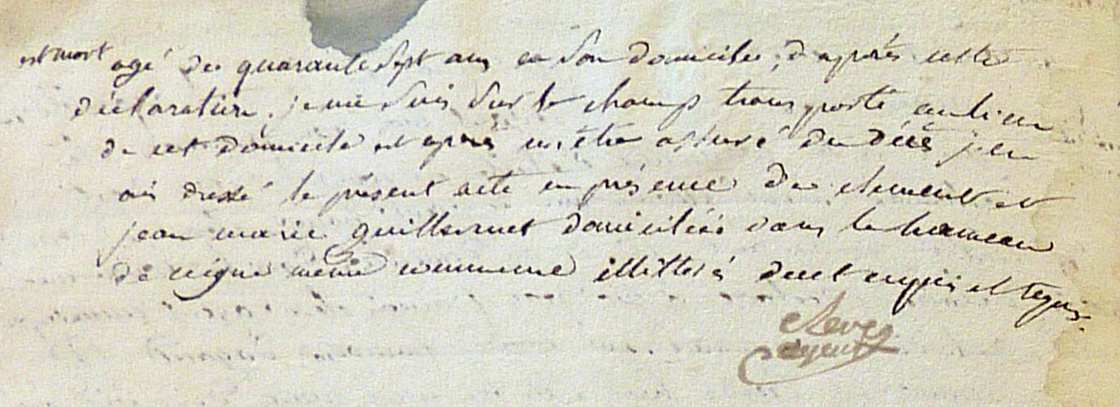 est mort agé de quarante sept ans en son domicile, d'après cette
déclaration, je me suis sur le champ transporté au lieu
de cet domicile et après m'être assuré du décé j'en
ais dressé le présent acte en présence de clement et
jean marie guillermet domiciliés dans le hameau
de même commune illitterés de ce enquis et requis.